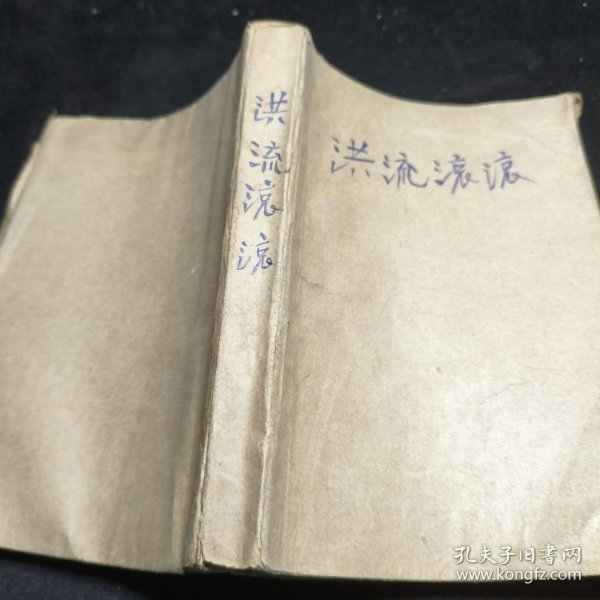 洪流滚滚
洪流滚滚
孔夫子旧书网
www.kongfz.com